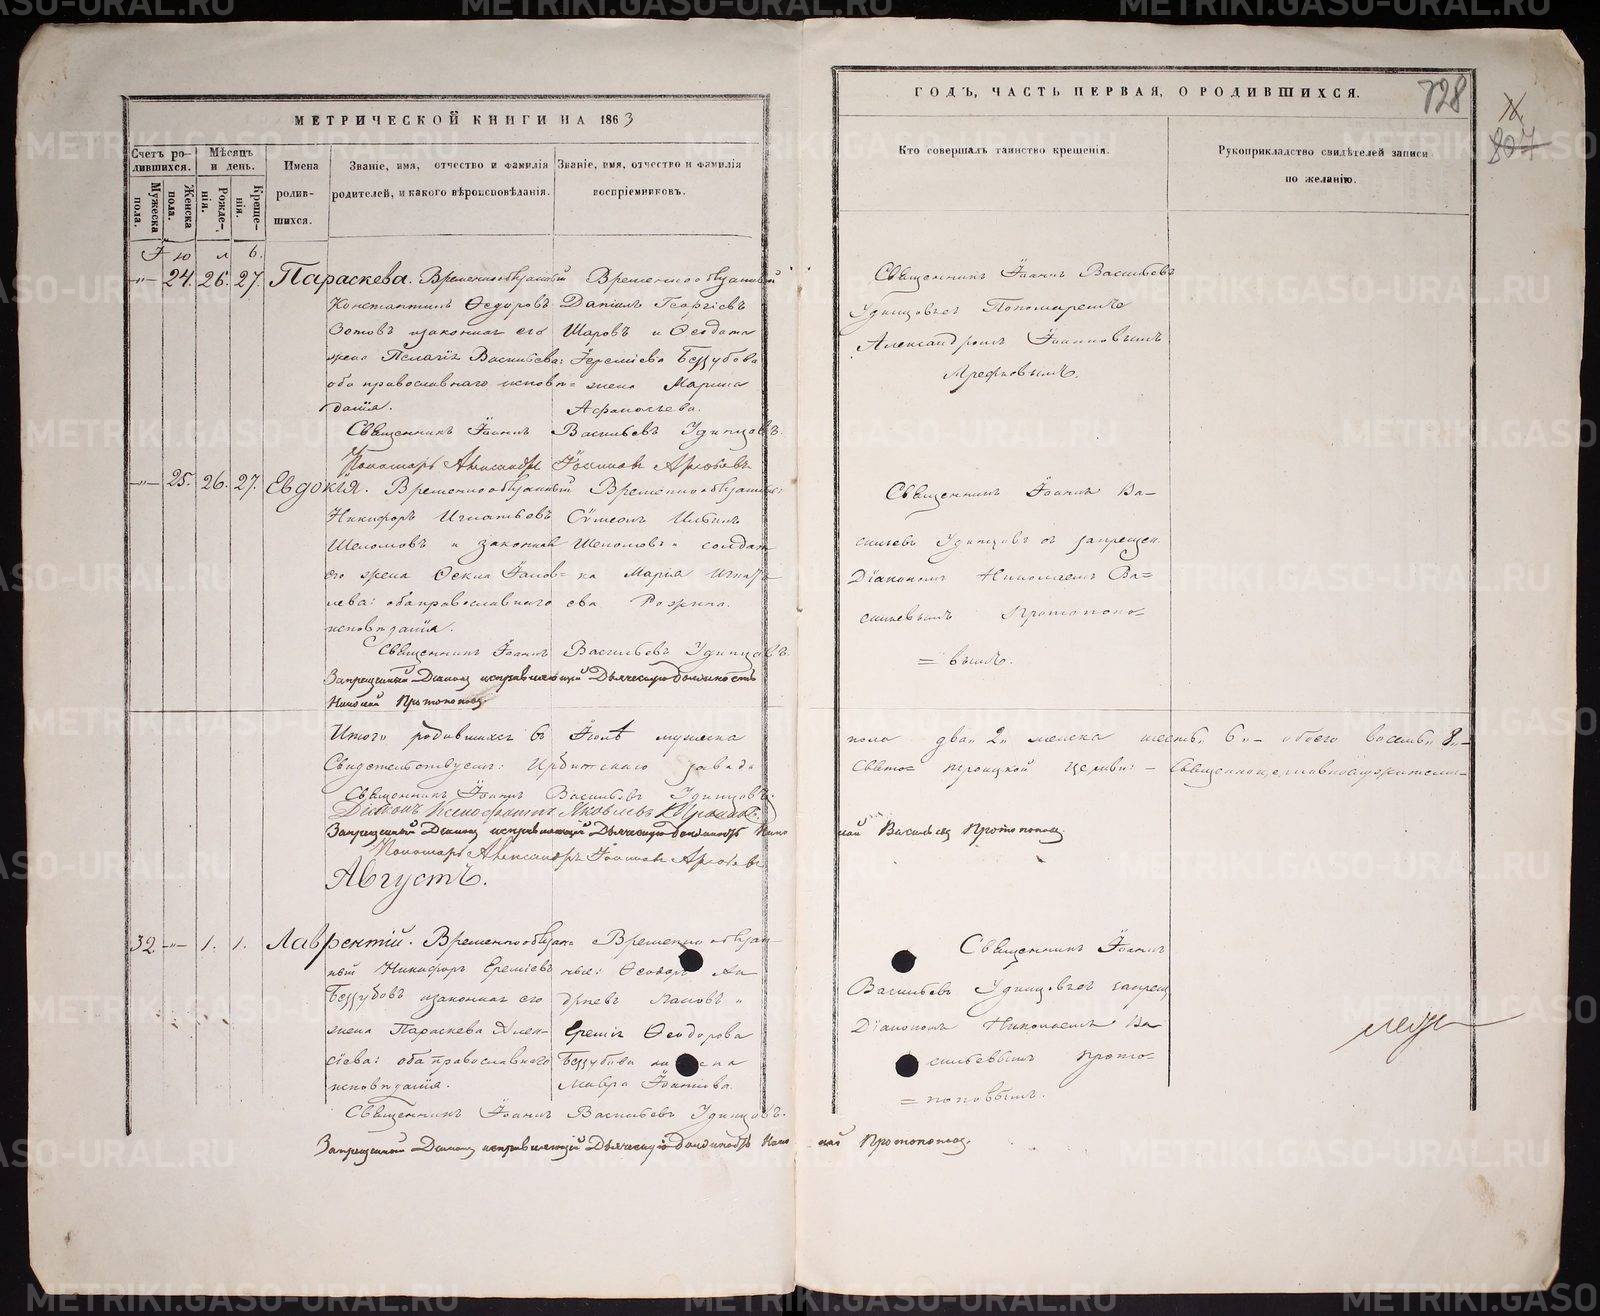 МЕТРИЧЕСКОЙ КНИГИ НА 1863
ГОДЪ, ЧАСТЬ ПЕРВАЯ, О РОДИВШИХСЯ.
728
807
Счетъ ро-
дившихся.
Мужеска
пола.
Женска
пола.
Мѣсяцъ
и день.
Рожде-
нія.
Креще-
нія.
Имена
родив-
шихся.
Званіе, имя, отчество и фамилія
родителей, и какого вѣроисповѣданія.
Званіе, имя, отчество и фамилія
воспріемниковъ.
Кто совершалъ таинство крещенія.
Рукоприкладство свидѣтелей записи
по желанію.
-"- 24. 26. 27. Параскева.
Временнообязанный
Константинъ Ѳедоровъ
Зотовъ изаконная его
жена Пелагія Васильева:
оба православнаго исповѣ=
данія.
Временнообязанный
Даніилъ Георгіевъ
Шаровъ и Ѳеодота
Іереміева Беззубова
жена Марина
Священникъ Іоаннъ Васильевъ Удинцовъ.
Пономарь Александръ Іоанновъ
Священникъ Іоаннъ Васильевъ
Удинцовъ съ Пономаремъ
Александромъ Іоанновымъ
-"- 25. 26. 27. Евдокія.
Временнообязанный
Никифоръ Игнатьевъ
Шеломовъ и законная
его жена
оба православнаго
исповѣданія.
Временнообязанный
Сѵмеонъ Ильинъ
Шеломовъ и солдат
ка Марія Игнать
ева
Священникъ Іоаннъ Васильевъ Удинцовъ.
Запрещенный Діаконъ исправляющій Дьяческую должность
Николай Протопоповъ
Священникъ Іоаннъ Ва-
сильевъ Удинцовъ съ запрещен.
Діакономъ Николаемъ Ва=
сильевымъ Протопопо=
= вымъ.
Итого родившихся въ Іюлѣ мужеска
пола два „2„ женска шесть „6„ - обоего восемь „8„-
Свидетельствуемъ: Ирбитскаго завода
Свято= Троицкой Церкви: - Священноцерковнослужители-
Священникъ Іоаннъ Васильевъ Удинцовъ.
Діаконъ Ксенофонтъ Яковлевъ
Запрещенный Діаконъ исправляющій Дьяческую должность Нико
лай Васильевъ Протопоповъ.
Пономарь Александръ Іоанновъ
Августъ.
32. -"- 1. 1. Лаврентій.
Временнообязан=
ный Никифоръ Ереміевъ
Беззубовъ изаконная его
жена Параскева Алек-
сіева: оба православнаго
исповѣданія.
Временно обязан-
ные: Ѳеодоръ Ан
дреевъ
Ереміи Ѳеодорова
Беззубова жена
Мавра
Священникъ Іоаннъ Васильевъ Удинцовъ.
Запрещенный Діаконъ исправляющій Дьяческую должность Нико
лай Протопоповъ.
Священникъ Іоаннъ
Васильевъ Удинцовъ съ запрещ
Діакономъ Николаемъ Ва
сильевымъ Прото=
= поповымъ.
METRIKI.GASO-URAL.RU